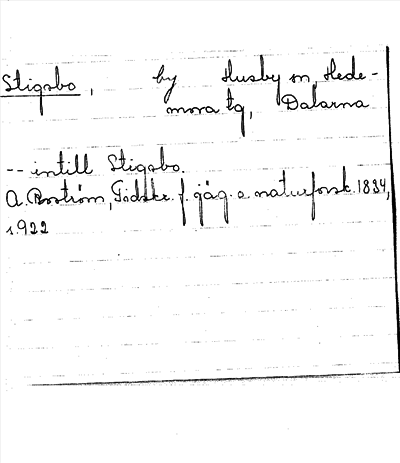 Stigsbo, by Husby sn, Hede-
mora tg, Dalarna
-- intill Stigsbo.
A. Boström, Tidskr. f. jäg. o. naturforsk. 1834,
s. 922